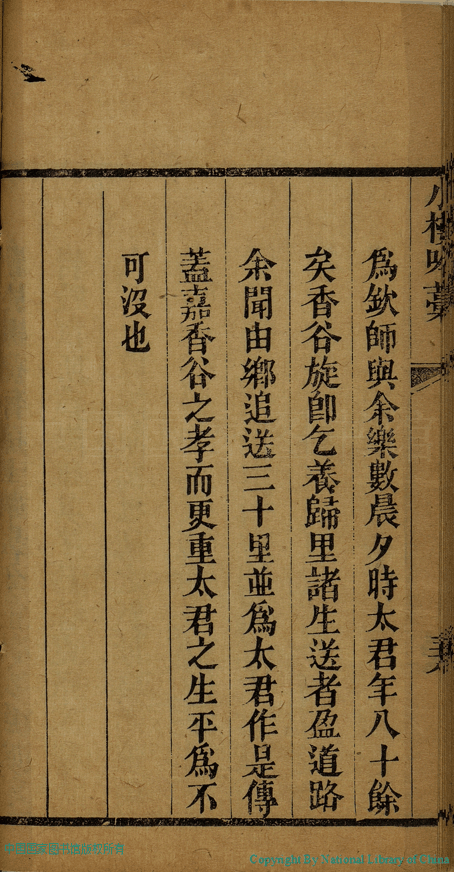 爲欽師與余樂數晨夕時太君年八十餘
矣香谷旋卽乞養歸里諸生送者盈道路
余聞由鄉追送三十里並爲太君作是傳
蓋嘉香谷之孝而更重太君之生平爲不
可沒也
Copyright By National Library of China